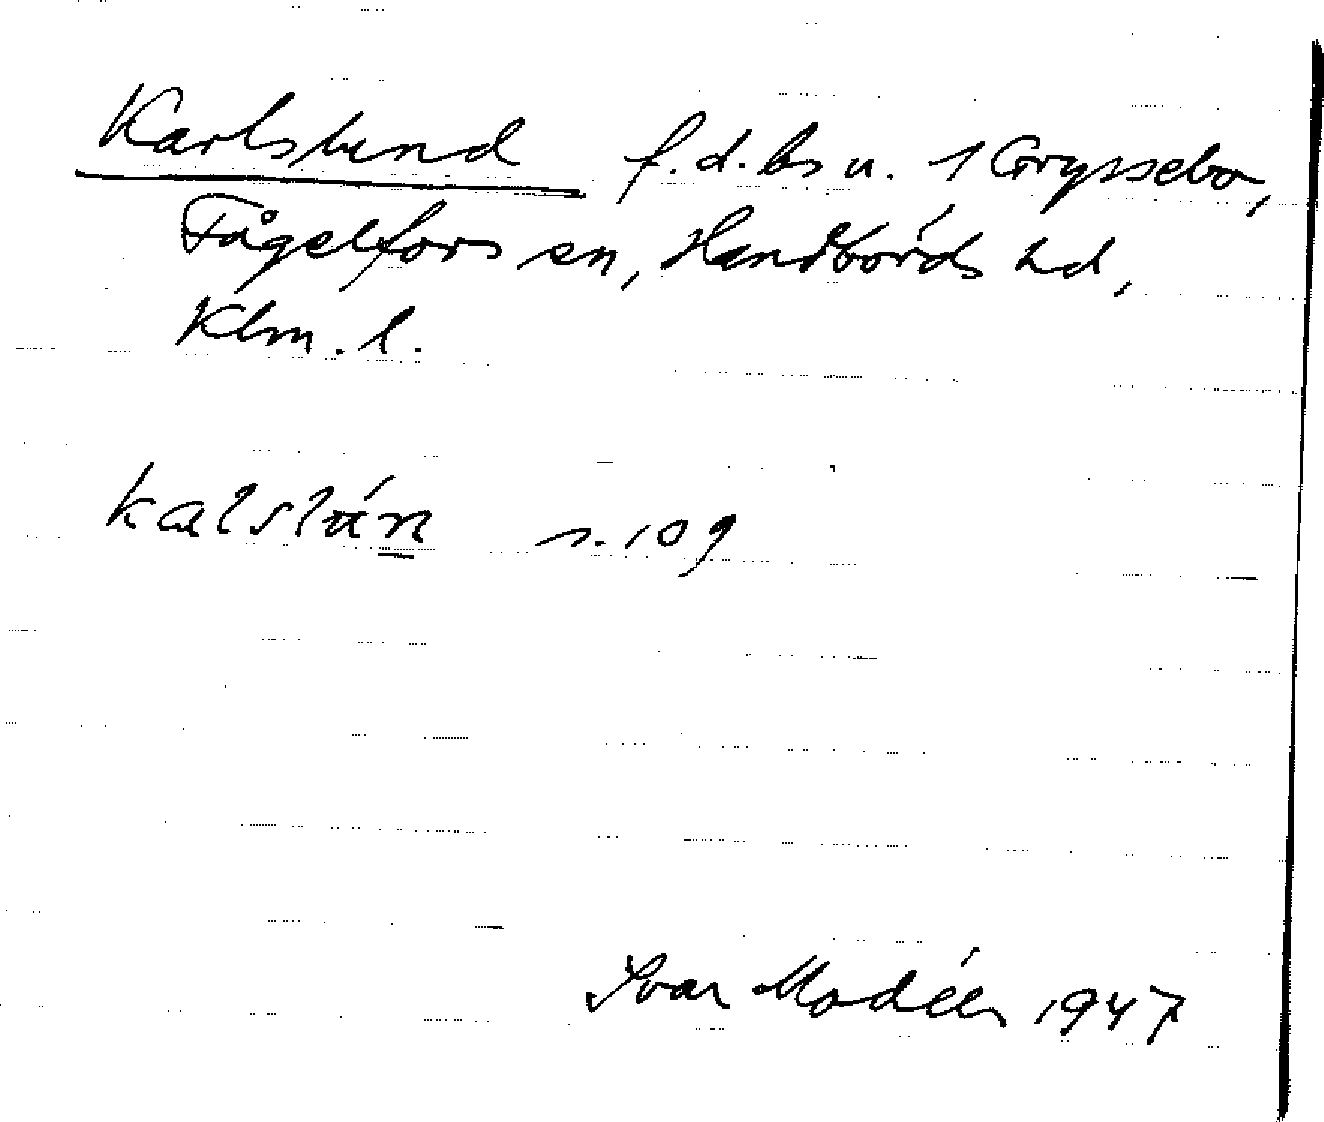 Karlslund f.d. bs u. 1 Gryssebo,
Fågelfors sn, Handbörds hd,
Klm. l.
kalslún s. 109
Ivar Modéer 1947